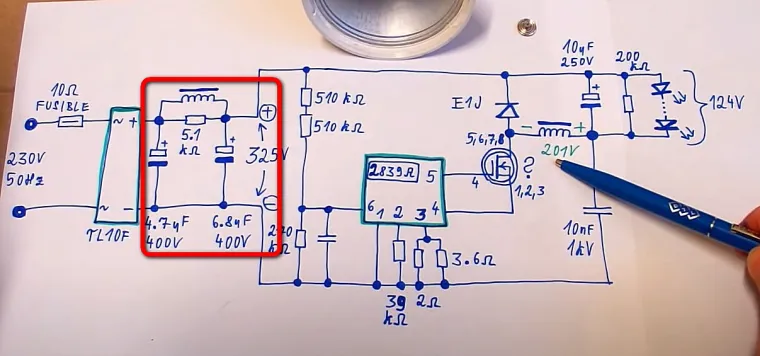 10Ω
FUSIBLE
230V
50Hz
~ +
~ −
TL10F
5.1
kΩ
+
+
4.7µF
400V
6.8µF
400V
+
325V
−
510 kΩ
510 kΩ
kΩ
2839Ω
5
6
1
2
3
4
39
kΩ
2Ω
3.6Ω
E1J
5,6,7,8
4
?
1,2,3
− +
201V
10µF
250V
+
200
kΩ
124V
10nF
1kV